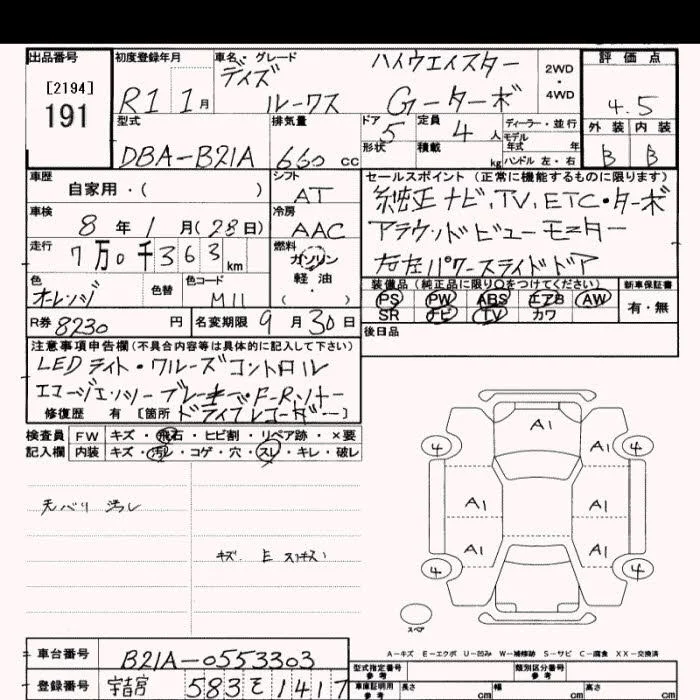 出品番号 初度登録年月 車名・グレード 評価点
[2194]
191
R1 1月
デイズ ハイウエイスター
ルークス Gーターボ
2WD・4WD
4.5
外装 内装
B B
型式 排気量 ドア 定員 ディーラー・並行
DBA-B21A 660cc 5 4人 モデル年式 年
形状 積載 kg ハンドル 左・右
車歴 シフト セールスポイント(正常に機能するものに限ります)
自家用・( ) AT
純正ナビ,TV,ETC・ターボ
車検 冷房
8年1月(28日) AAC
アラウンドビューモニター
走行 燃料
7万0千363km ガソリン
左右パワースライドドア
軽油
・( ・ )
色 色替 色コード
オレンジ M11
装備品(純正品に限り○をつけてください) 新車保証書
PS PW ABS エアB AW 有・無
SR ナビ TV カワ
R券 8230円 名変期限 9月30日
後日品
注意事項申告欄(不具合内容等は具体的に記入して下さい)
LEDライト・クルーズコントロル
エマージェンシーブレーキ・F-Rソナー
修復歴 有 [箇所 ドライブレコーダー]
検査員 FW キズ・飛石・ヒビ割・リペア跡・×要
記入欄 内装 キズ・汚レ・コゲ・穴・スレ・キレ・破レ
天バリ 汚レ
A1
4 4
A1 A1
A1 A1
4 4
スペア
A-キズ E-エクボ U-凹み W-補修跡 S-サビ C-腐食 XX-交換済
車台番号 B21A-0553303
型式指定番号 参考 類別区分番号 参考
登録番号 宇都宮 583 を 1417
車庫証明用 参考 長さ cm 幅 cm 高さ cm